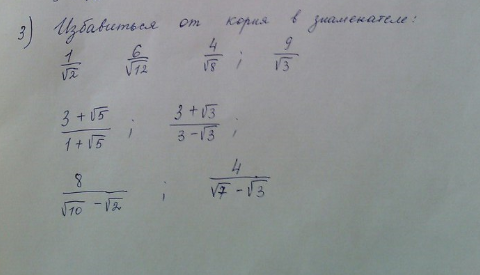 3) Избавиться от корня в знаменателе:
1/√2 6/√12 4/√8 ; 9/√3
(3 + √5)/(1 + √5) ; (3 + √3)/(3 - √3) ;
8/(√10 - √2) ; 4/(√7 - √3)